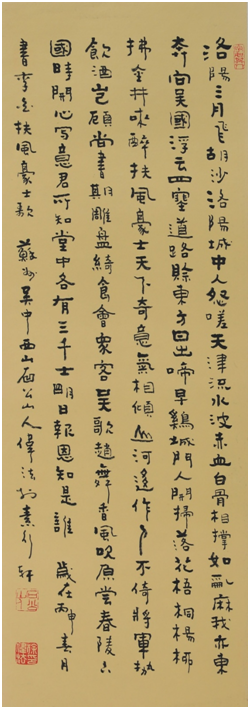 洛陽三月飛胡沙洛陽城中人怨嗟天津流水波赤血白骨相撐如亂麻我亦東
奔向吳國浮云四塞道路賒東方日出啼早鷄城門人開掃落花梧桐楊柳
拂金井來醉扶風豪士天下奇意氣相傾山河作人不倚將軍勢
飲酒豈顧尚書期雕盤綺食會眾客吳歌趙舞香風吹原嘗春陵六
國時開心写意君所知堂中各有三千士明日報恩知是誰 歲在丙申春月
書李白扶風豪士歌 蘇州吳中西山山人偉法於素行軒